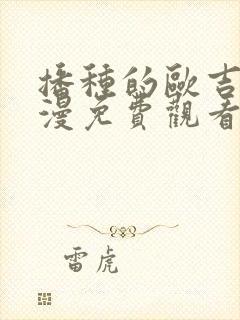 播種的歐吉
漫免費觀看
雷虎